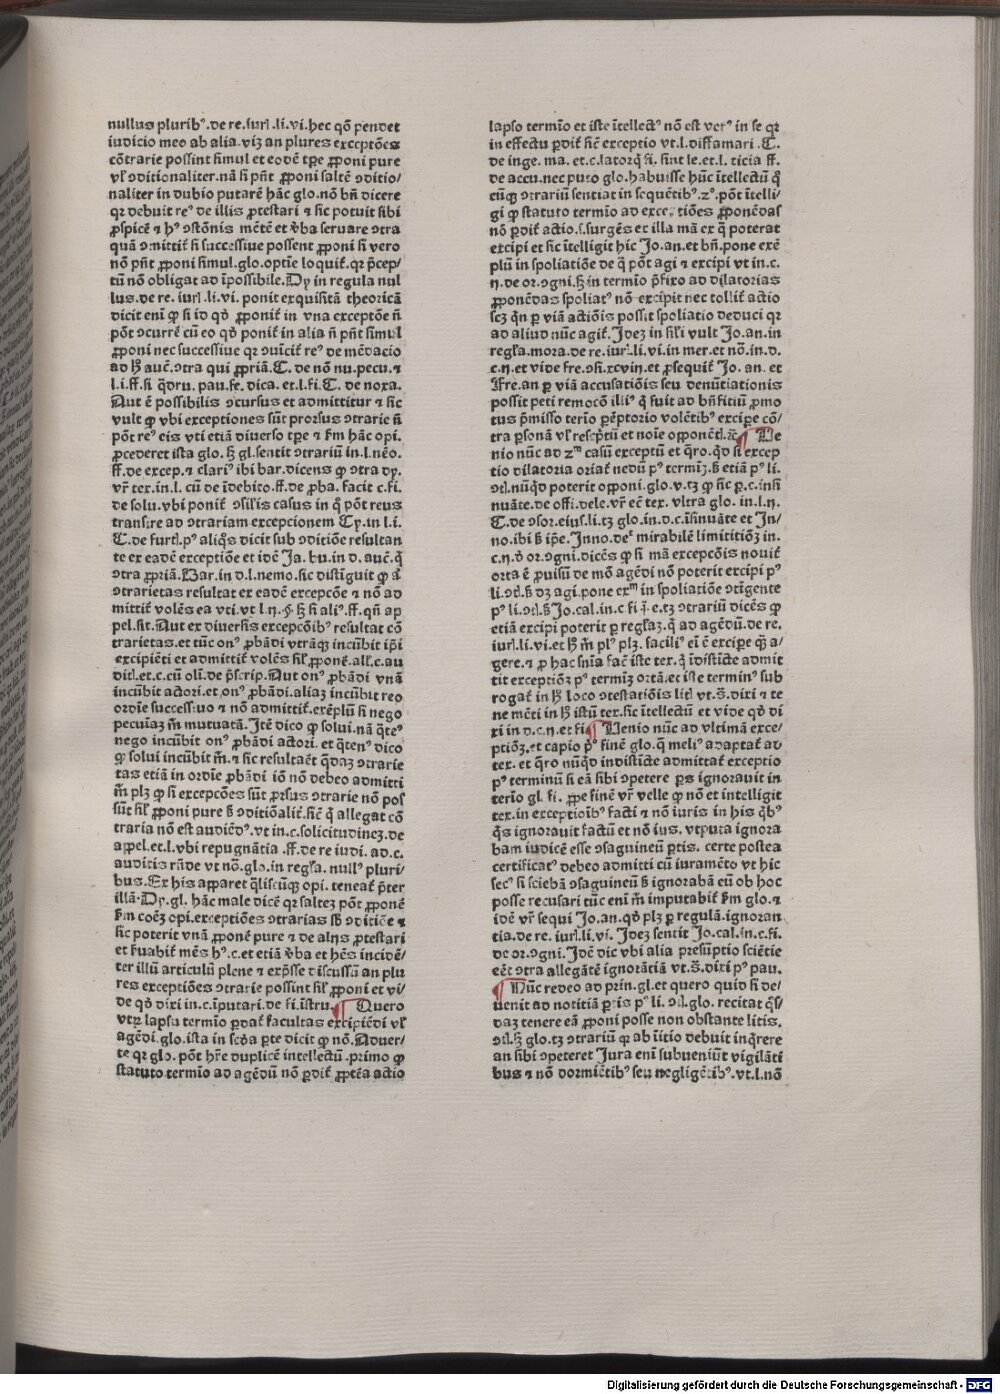 nullus pluribꝰ.de re.iurꝭ.li.vi.hec qō pendet
iudicio meo ab alia.viꝫ an plures exceptōes
cōtrarie possint simul et eodē tꝑe ꝓponi pure
vl̕ ꝯditionaliter.nā si pn̄t ꝓponi saltē ꝯditio/
naliter in dubio putarē hāc glo.nō bn̄ dicere
qꝛ debuit reꝰ de illis ꝓtestari ⁊ sic potuit sibi
ꝓspicē ⁊ hꝰ ꝯstōnis mētē et v̄ba seruare ꝯtra
quā ꝯmittit̕ si successiue possent ꝓponi si vero
nō pn̄t ꝓponi simul.glo.optīe loquit̕.qꝛ p̄cep/
tū nō obligat ad īpossibile.Dy in regula nul
lus.de re. iurꝭ.li.vi. ponit exquisitā theoricā
dicit enī ꝙ si id qd̕ ꝓponit̕ in vna exceptōe n̄
pōt ꝯcurrē cū eo qd̕ ponit̕ in alia n̄ pn̄t simul
ꝓponi nec successiue qꝛ ꝯuīcit̕ reꝰ de mēdacio
ad hꝫ aucͭ.ꝯtra qui ꝓpriā.C. de nō nu.pecu.⁊
l.i.ff.si q̄dru. pau.fe. dica. et.l.fi.C. de noxa.
Aut ē possibilis ꝯcursus et admittitur ⁊ sic
vult ꝙ vbi exceptiones sūt prorsus ꝯtrarie n̄
pōt reꝰ eis vti etiā diuerso tꝑe ⁊ ẜm hāc opi.
ꝓcederet ista glo. hꝫ gl.sentit ꝯtrariū in.l.nēo.
ff.de excep.⁊ clariꝰ ibi bar.dicens ꝙ ꝯtra dy.
vr̄ tex.in.l. cū de īdebito.ff.de ꝓba. facit c.fi.
de solu.vbi ponit̕ ꝯsilis casus in q̊ pōt reus
transire ad ꝯtrariam excepcionem Cy.in l.i.
C.de furtꝭ.pꝰ aliq̄s dicit sub ꝯditione resultan
te ex eadē exceptiōe et idē Ja. bu.in d. aucͭ.q̄
ꝯtra ꝓpriā.Bar.in d.l.nemo.sic distīguit ꝙ a̅
ꝯtrarietas resultat ex eadē excepcōe ⁊ nō ad
mittit̕ volēs ea vti.vt l.ij.§.hꝫ si aliꝰ.ff.qn̄ ap
pel.sit.Aut ex diuersis excepcōibꝰ resultat cō
trarietas.et tūc onꝰ ꝓbādi vtrāqꝫ incūbit ip̄i
excipiēti et admittit̕ volēs sil̕ ꝓponē.all̕.c.au
ditꝭ.et.c.cū olī.de p̄scrip.Aut onꝰ ꝓbādi vnā
incūbit actori.et onꝰ ꝓbādi.aliaꝫ incūbit reo
ordīe successiuo ⁊ nō admittit̕.exēplū si nego
pecuīaꝫ m̄ mutuatā.Itē dico ꝙ solui.nā q̄teꝰ
nego incūbit onꝰ ꝓbādi actori. et q̄tenꝰ dico
ꝙ solui incūbit m̄.⁊ sic resultāet q̄daꝫ ꝯtrarie
tas etiā in ordīe ꝓbādi iō nō debeo admitti
m̄ plꝫ ꝙ si excepcōes sūt ꝓrsus ꝯtrarie nō pos
sūt sil̕ ꝓponi pure ẜ ꝯditiōalit̕.sic̄ q̄ allegat cō
traria nō est audiēdꝰ.vt in.c.solicitudineꝫ.de
appel.et.l.vbi repugnātia .ff.de re iudi. ad.c.
auditis rn̄de vt nō.glo.in regl̕a. nullꝰ pluri/
bus.Ex his apparet q̄liscūqꝫ opi. teneat̕ p̄ter
illā.Dy.gl. hāc male dicē qꝛ salteꝫ pōt ꝓponē
ẜm coēꝫ opi.exceptiōes ꝯtrarias sb̄ ꝯditiōe ⁊
sic poterit vnā ꝓponē pure ⁊ de alijs ꝓtestari
et ẜuabit̕ mēs hꝰ.c.et etiā v̄ba et hēs incidē/
ter illū articulū plene ⁊ exp̄sse discussū an plu
res exceptiōes ꝯtrarie possint sil̕ ꝓponi et vi/
de qd̕ dixi in.c.īputari.de fi.īstru. Quero
vtꝝ lapsu termīo ꝑdat̕ facultas excipiēdi vl̕
agēdi.glo.ista in scd̄a ꝑte dicit ꝙ nō.Aduer/
te qꝛ glo. pōt hr̄e duplicē intellectū.primo ꝙ
statuto.termīo ad agēdū nō ꝑdit̕ ꝓptēa actio
lapso termīo et iste ītellectꝰ nō est verꝰ in se qꝛ
in effectu ꝑdit̕ sic̄ exceptio vt.l.diffamari .C.
de inge. ma. et.c.latorq̄ n̄. sint le.et.l. ticia ff.
de accu.nec puto glo.habuisse hūc ītellectū q̄
cūqꝫ ꝯtrariū sentiat in sequētibꝰ.2°.pōt ītelli/
gi ꝙ statuto termīo ad exceptiōes ꝓponēdas
nō ꝑdit̕ actio.s.surgēs ex illa mā ex q̄ poterat
excipi et sic ītelligit hic Jo.an.et bn̄.pone exē
plū in spoliatiōe de q̄ pōt agi ⁊ excipi vt in.c.
ij.de or.ꝯgni.hꝫ in termīo p̄fixo ad dilatorias
ꝓponēdas spoliatꝰ nō excipit nec tollit̕ actio
scꝫ q̄n ꝑ viā actiōis possit spoliatio deduci qꝛ
ad aliud nūc agit̕. Jdeꝫ in sil̕i vult Jo.an.in
regl̕a.mora.de re.iurꝭ.li.vi.in mer.et nō.in.d.
c.ij.et vide fre.ꝯsi.xcvij.et ꝓsequit̕ Jo. an. et
Fre.an ꝑ viā accusatiōis seu denūtiationis
possit peti remocō illiꝰ q̄ fuit ad bn̄fitiū ꝓmo
tus p̄misso terīo ꝑēptorio volētibꝰ exciꝑe cō/
tra ꝑsonā vl̕ rescp̄tū et noīe opponētꝭ.⁊c̄ Ve
nio nūc ad 2ᵐ casū exceptū et q̄ro.qd̕ si excep
tio dilatoria oriat̕ nedū pꝰ termiꝫ.ẜ etiā pꝰ li.
ꝯtꝭ.nūqd̕ poterit opponi.glo.v.tꝫ ꝙ sic ꝑ.c.insi
nuāte.de offi.dele.vr̄ eē tex. vltra glo. in.l.ij.
C.de ꝯsor.eius.li.tꝫ glo.in.d.c.īsinuāte et Jn/
no.ibi ẜ ip̄e. Jnno.deͭ mirabilē limititiōꝫ in.
c.ij.d̕ or.ꝯgni.dicēs ꝙ si mā excepcōis nouit̕
orta ē ꝓuisū de mō agēdi nō poterit excipi pꝰ
li.ꝯtꝭ.ẜ dꝫ agi.pone exᵐ in spoliatiōe ꝯtīgente
pꝰ li.ꝯtꝭ.ẜ Jo.cal.in.c fi q̄.e.tꝫ ꝯtrariū dicēs ꝙ
etiā excipi poterit ꝑ regl̕aꝫ.q̄ ad agēdū.de re.
iurꝭ.li.vi.et hꝫ m̄ plꝰ plꝫ. faciliꝰ eī ē exciꝑe q̄ a/
gere.⁊ ꝓ hac sn̄ia fac̄ iste tex.q̄ īdistīcte admit
tit exceptiōꝫ pꝰ termiꝫ ortā.et iste terminꝰ sub
rogat̕ in hꝫ loco ꝯtestatiōis litꝭ vt.s̄.dixi ⁊ te
ne mēti in hꝫ istū tex.sic ītellectū et vide qd̕ di
xi in d.c.ij.et fi Venio nūc ad vltimā exce/
ptiōꝫ.et capio pꝰ finē glo.q̄ meliꝰ adaptat̕ ad
tex. et q̄ro nūqd̕ indistīcte admittat̕ exceptio
pꝰ terminū si eā sibi ꝯpetere ꝑs ignorauit in
terīo gl. fi. ꝓpe finē vr̄ velle ꝙ nō et intelligit
tex.in exceptioībꝰ facti ⁊ nō iuris in his q̄bꝰ
q̄s ignorauit factū et nō ius. vtputa ignora
bam iudicē esse ꝯsaguineū ꝑtis. certe postea
certificatꝰ debeo admitti cū iuramēto vt hic
secꝰ si sciebā ꝯsaguineū ẜ ignorabā eū ob hoc
posse recusari tūc enī m̄ imputabit̕ ẜm glo.⁊
idē vr̄ sequi Jo.an.qd̕ plꝫ ꝑ regulā.ignoran
tia.de re. iurꝭ.li.vi. Jdeꝫ sentit Jo.cal.in.c.fi.
de or.ꝯgni. Jdē dic vbi alia presūptio sciētie
eēt ꝯtra allegātē ignorātiā vt.s̄.dixi pꝰ pau.
Nūc redeo ad prin.gl.et quero quid si de/
uenit ad notitiā ꝑtis pꝰ li. ꝯtꝭ.glo. recitat q̄s/
daꝫ tenere eā ꝓponi posse non obstante litis.
ꝯtꝭ.hꝫ glo.tꝫ ꝯtrariū qꝛ ab ītio debuit inq̄rere
an sibi ꝯpeteret Jura enī subueniūt vigilāti
bus ⁊ nō dormiētibꝰ seu negligētibꝰ.vt.l.nō
Digitalisierung gefördert durch die Deutsche Forschungsgemeinschaft - DFG